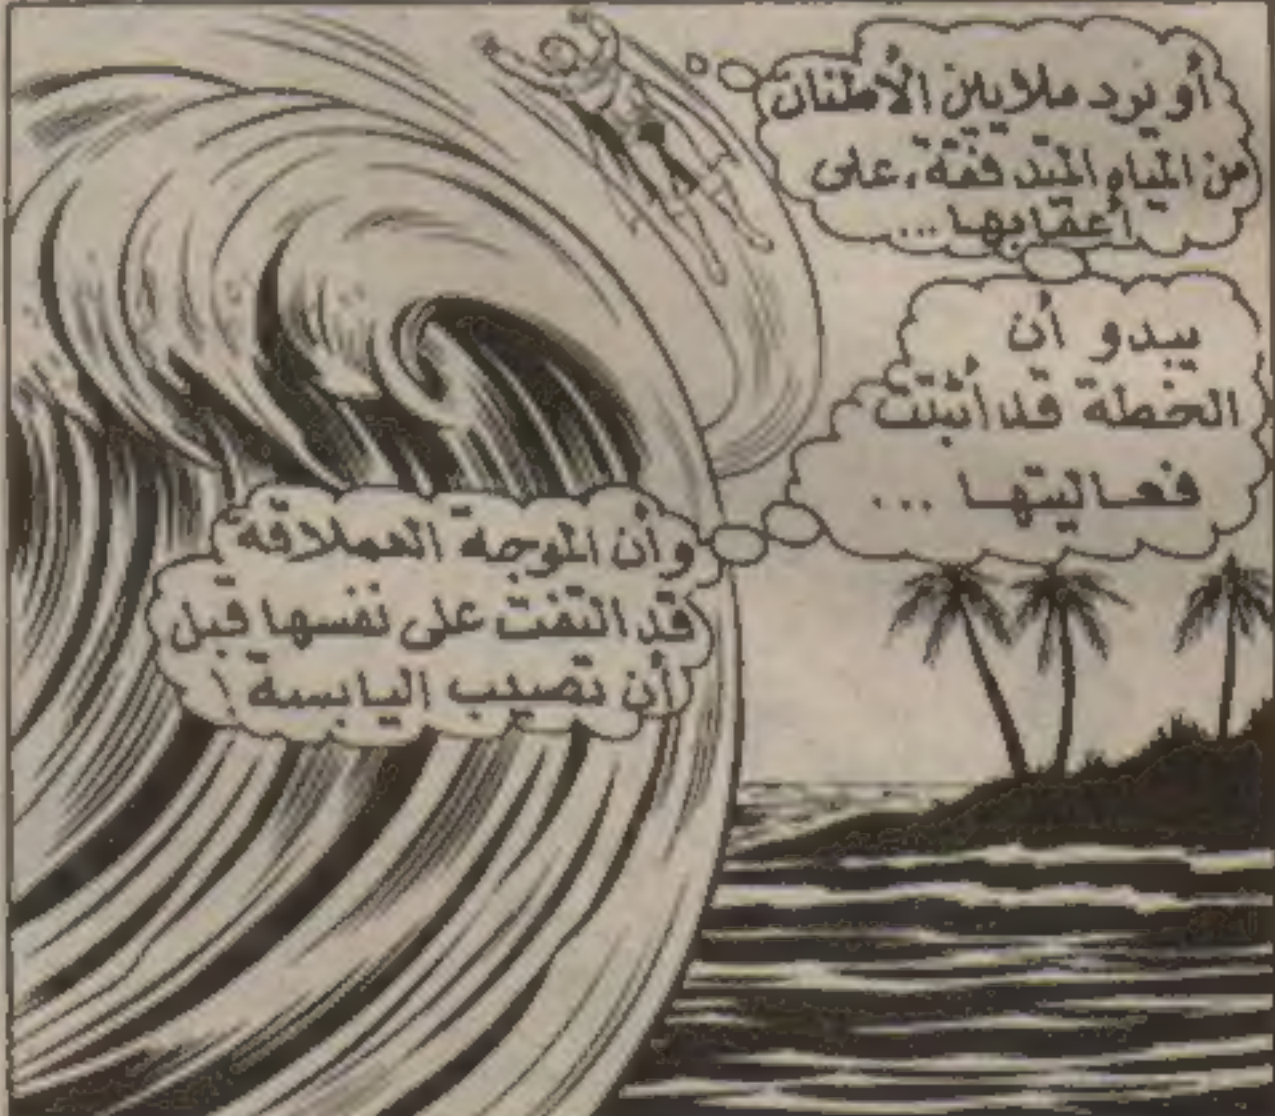 أو يرد ملايين الأطنان
من المياه المتدفقة، على
أعقابها...
يبدو أن
الخطة قد أثبتت
فعاليتها...
وأن الموجة العملاقة
قد التفت على نفسها قبل
أن تصيب اليابسة!